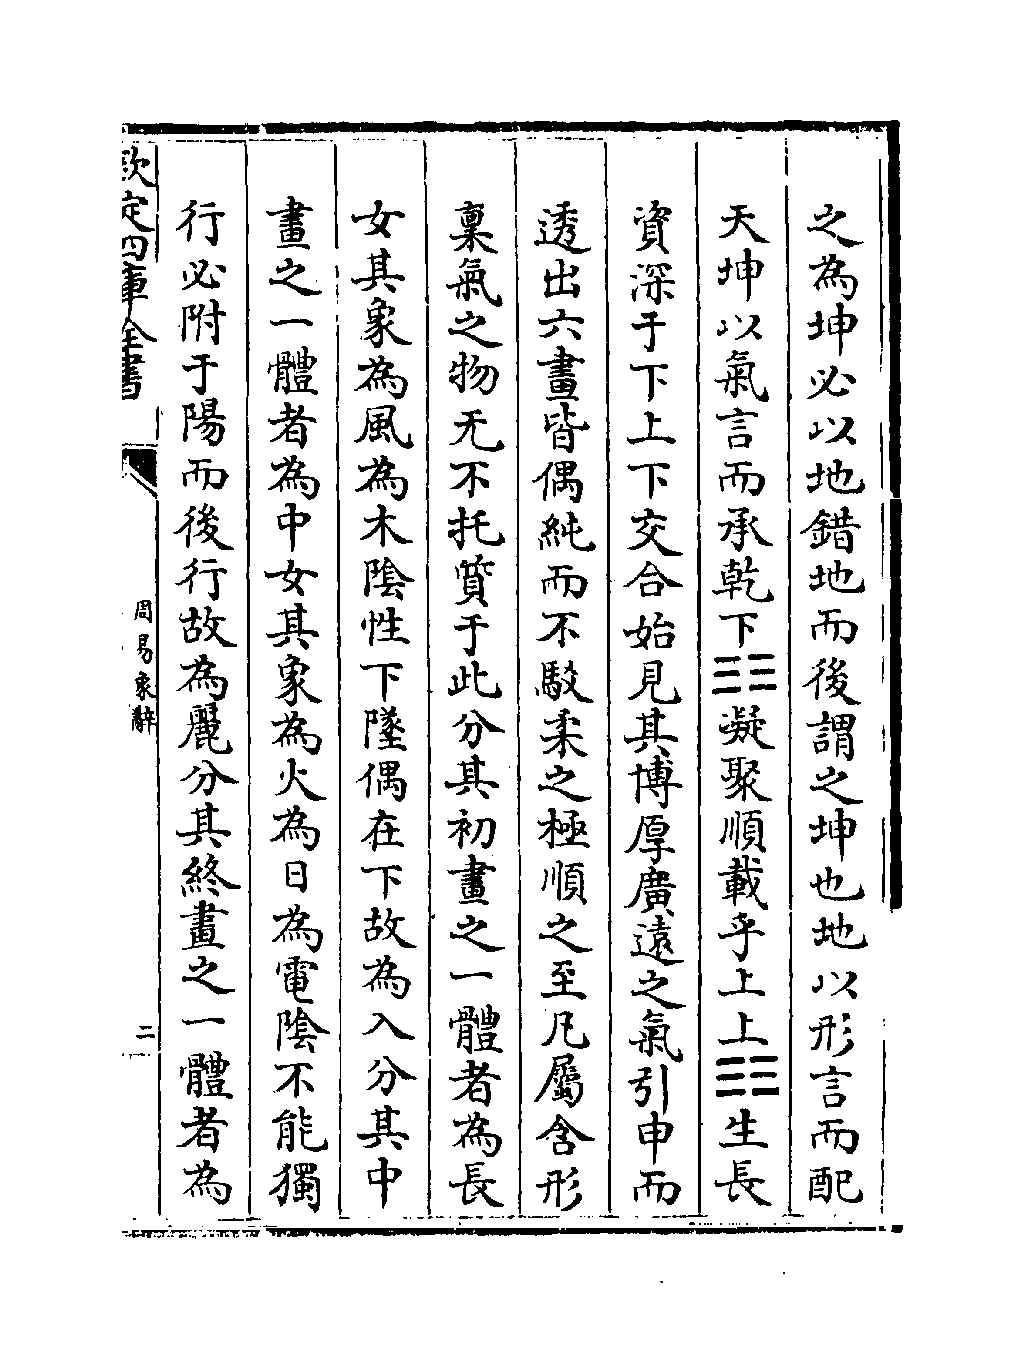 之為坤必以地錯地而後謂之坤也地以形言而配
天坤以氣言而承乾下☷凝聚順載乎上上☷生長
資深于下上下交合始見其博厚廣遠之氣引申而
透出六畫皆偶純而不駁柔之極順之至凡屬含形
稟氣之物无不托質于此分其初畫之一體者為長
女其象為風為木陰性下墜偶在下故為入分其中
畫之一體者為中女其象為火為日為電陰不能獨
行必附于陽而後行故為麗分其終畫之一體者為
欽定四庫全書
周易象辭
二